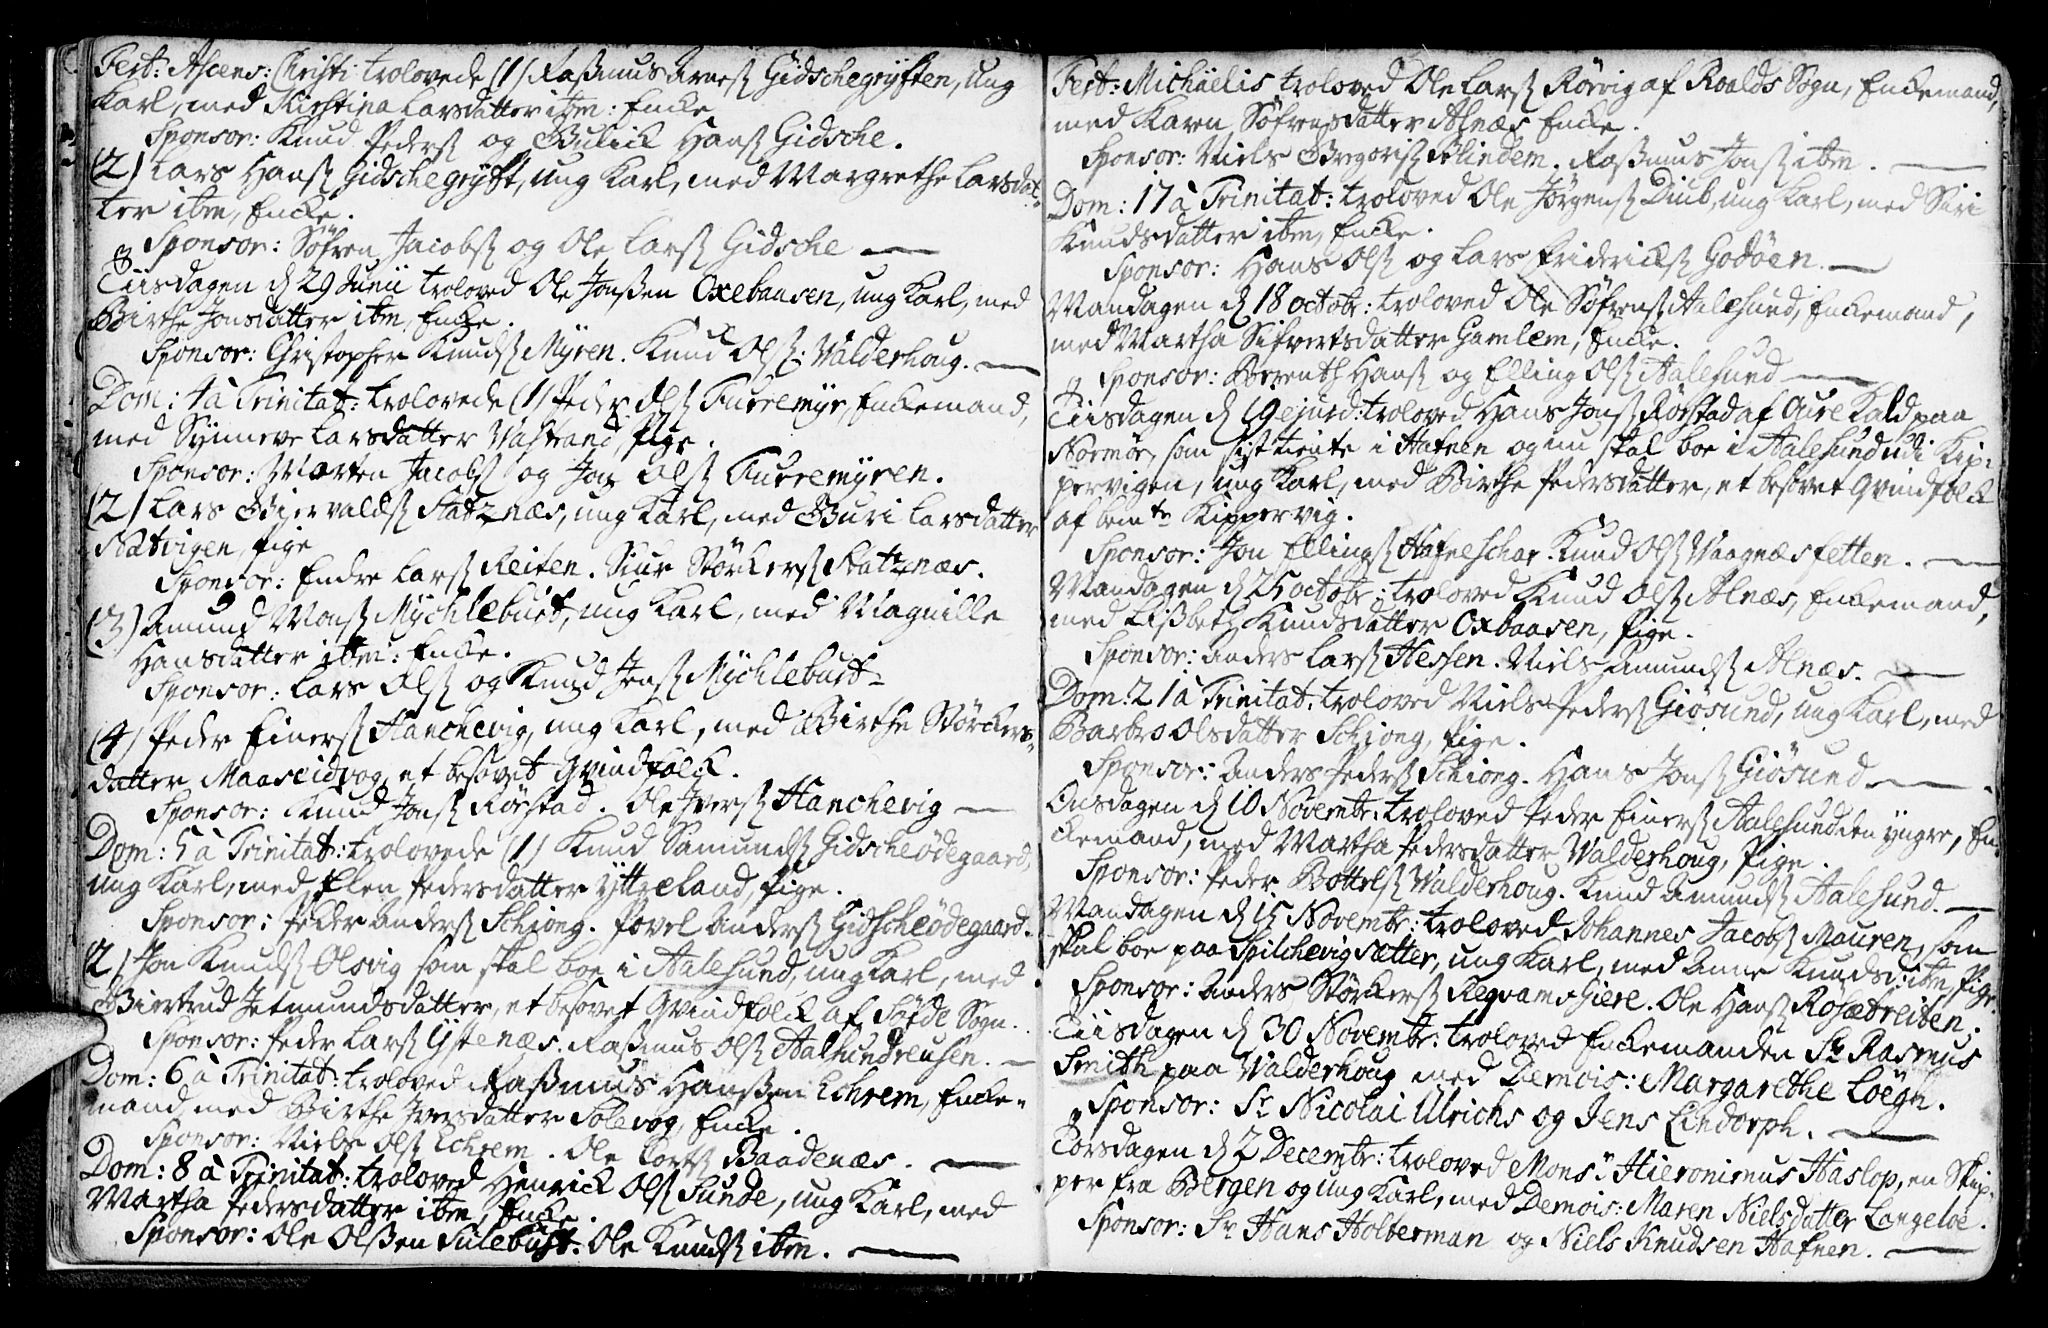 Fest: Ascens: Christi trolovede (1) Rasmus Arness Gidschegryften, ung
Karl, med Kirstina Larsdatter ibm: Encke
Sponsor: Knud Peders og Gulick Hans Gidsche.
(2) Lars Hans Gidschegryft, ung Karl, med Margrethe Larsdat-
ter ibm, Encke.
Sponsor: Söfren Jacobs og Ole Lars Gidsche
Tiisdagen d 29 Junii troloved Ole Jonssen Oxebaasen, ung Karl, med
Birthe Jonsdatter ibm, Encke.
Sponsor: Christopher Knuds Myren. Knud Ols: Walderhoug.
Dom: 4 à Trinitat: trolovede (1) Peder Ols Furremyr, Enckemand,
med Synneve Larsdatter Vastrand, Pige.
Sponsor: Morten Jacobs og Jon Ols Furremyren.
(2) Lars Giervalds Statznæs, ung Karl, med Guri Larsdatter
Natvigen, Pige
Sponsor: Endre Lars Reiten. Siur Störckers Statznæs.
(3) Amund Mons Mychlebust, ung Karl, med Magnille
Hansdatter ibm: Encke.
Sponsor: Lars Ols og Knud Jens Mychlebust
(4) Peder Einers Hanchevig, ung Karl, med Birthe Störckers-
datter Maaseidvog, et besovet Qvindfolck.
Sponsor: Knud Jons Rörstad. Ole Ivers Hanchevig
Dom: 5 à Trinitat: trolovede (1) Knud Samunds Gidscheödegaard,
ung Karl, med Elen Pedersdatter Yttreland, Pige.
Sponsor: Peder Anders Schiong. Povel Anders Gidscheödegaard.
(2) Jon Knuds Olsvig som skal boe i Aalesund, ung Karl, med
Giertrud Jetmundsdatter, et besovet Qvindfolck af Söfde Sogn.
Sponsor: Peder Lars Ystenæs. Rasmus Ols Aalmundreusen.
Dom: 6 à Trinitat: troloved Rasmus Hanssen Echrem, Encke-
mand, med Birthe Iversdatter Solevog, Encke.
Sponsor: Niels Ols Echrem. Ole Lars Baadenæs.
Dom: 8 à Trinitat: troloved Henrick Ols Sunde, ung Karl, med
Martha Pedersdatter ibm, Encke.
Sponsor: Ole Olssen Sulebust. Ole Knuds ibm.
Fest: Michäelis troloved Ole Lars Rörvig af Roalds Sogn, Enckemand,
med Karen Söfrensdatter Alnæs Encke.
Sponsor: Niels Gregoris Blindem. Rasmus Jons ibm.
Dom: 17 à Trinitat: troloved Ole Jörgens Diub, ung Karl, med Siri
Knudsdatter ibm, Encke.
Sponsor: Hans Ols og Lars Fridericks Godöen.
Mandagen d 18 octobr: troloved Ole Söfrens Aalesund, Enckemand,
med Martha Sifvertsdatter Gamlem, Encke.
Sponsor: Berenth Hans og Elling Ols Aalesund
Tiisdagen d 19 ejusd: troloved Hans Jons Rörstad af Aure Kald paa
Normör, som sist tiente i Hafnen og nu skal boe i Aalesund udi Kip-
pervigen, ung Karl, med Birthe Pedersdatter, et besovet Qvindfolck
af bem:te Kippervig.
Sponsor: Jon Ellings Hafneschar. Knud Ols Vaagnæsfetten.
Mandagen d 25 octobr: troloved Knud Ols Alnæs, Enckemand,
med Lisbeth Knudsdatter Oxbaasen, Pige.
Sponsor: Anders Lars Hessen. Niels Amunds Alnæs.
Dom: 21 à Trinitat: troloved Niels Peders Giösund, ung Karl, med
Barbro Olsdatter Schiong, Pige.
Sponsor: Anders Peders Schiong. Hans Jons Giösund.
Onsdagen d 10 Novembr: troloved Peder Einers Aalesund den yngre, En-
ckemand, med Martha Pedersdatter Walderhoug, Pige.
Sponsor: Peder Bottels Walderhoug. Knud Amunds Aalesund.
Mandagen d 15 Novembr: troloved Johannes Jacobs Mauren, som
skal boe paa Spilchevigsætter, ung Karl, med Anne Knudsd: ibm, Pige.
Sponsor: Anders Störckers Regvamsgiere. Ole Hans Rosætreiten.
Tiisdagen d 30 Novembr: troloved Enckemanden Sr Rasmus
Smith paa Walderhoug med Demois: Margarethe Löegh.
Sponsor: Sr Nicolai Ulrichs og Jens Lindorph.
Torsdagen d 2 Decembr: troloved Monsr Hieronimus Haslop, en Skip-
per fra Bergen og ung Karl, med Demois: Maren Nielsdatter Langeloe.
Sponsor: Sr Hans Holberman og Niels Knudsen Hafnen.